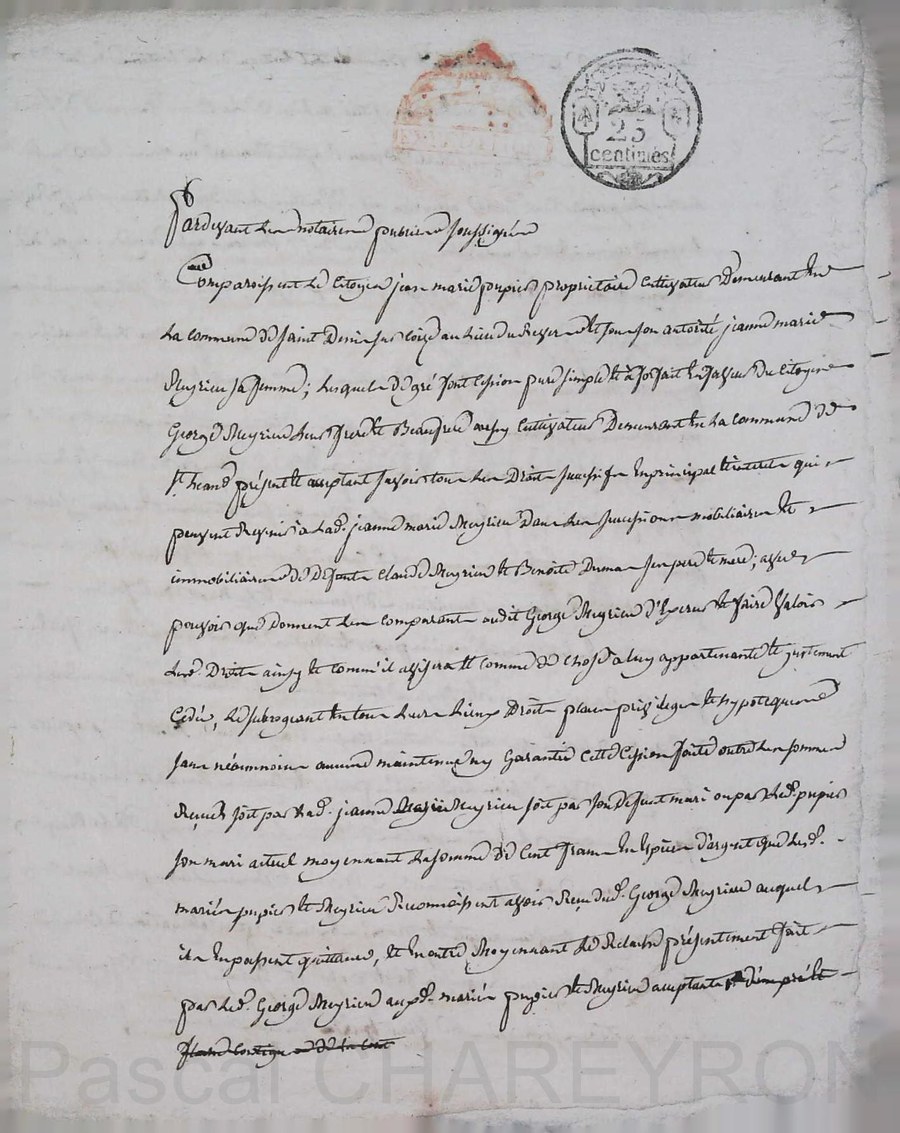 25
centimes
Pardevant les notaires publics soussignés
Comparoissent le Citoyen jean marie pupier propriétaire Cultivateur Demeurant en
La commune de saint Denis sur Coise au Lieu du et sous son autorité jeanne marie
Meyrieu sa femme; Lesquels de gré font Cession pure simple et à forfait En faveur du Citoyen
George Meyrieu leur frere et Beaufrere aussy Cultivateur Demeurant En La commune de
St. présent et acceptant savoir tous les Droits successifs En principal et intérêts qui
peuvent Revenir à Lad. jeanne marie Meyrieu Dans les successions mobiliaires et
immobiliaires de Defunts Claude Meyrieu et Benoite Dumas ses pere et mere; avec
pouvoir que Donnent les comparants audit George Meyrieu d'Exercer et faire Valoir
Lesd. Droits ainsy et comm'il avisera et comme de Chose a luy appartenante et justement
Cédée, Le subrogeant En tous leurs Lieux Droits place privileges et hypoteques
sans néanmoins aucune maintenue ny Garantie Cette Cession faite outre les sommes
Reçues soit par Lad. jeanne Marie Meyrieu soit par son Defunt mari ou par Led. pupier
son mari actuel moyennant La somme de Cent francs En Espèces d'argent que Lesd.
mariés pupier et Meyrieu Reconnoissent avoir Reçu dud. George Meyrieu auquel
ils En passent quittance, et En outre Moyennant Le présentement fait
par Led. George Meyrieu auxd. mariés pupier et Meyrieu acceptants
Pascal CHAREYRON